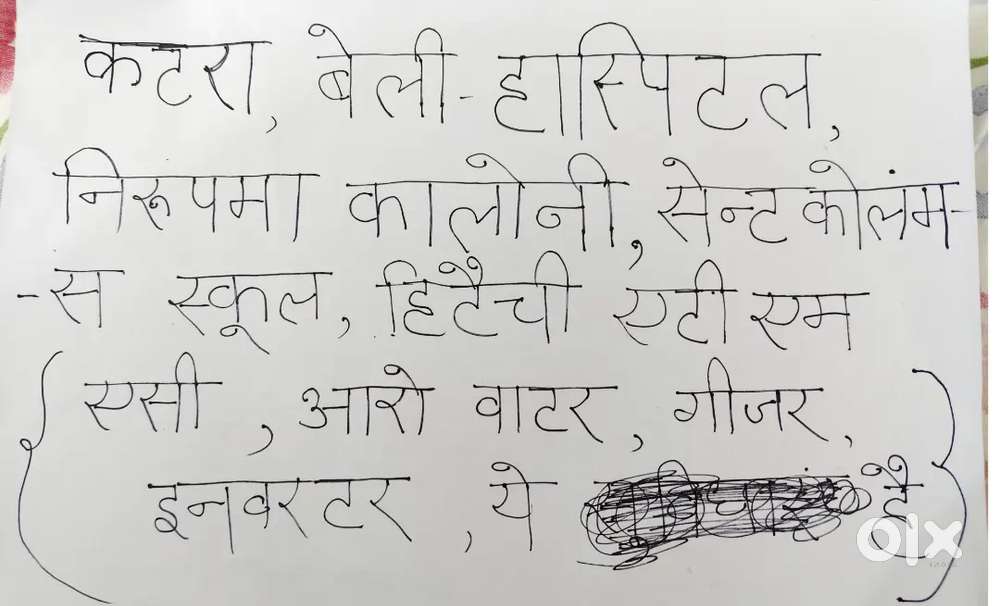 कटरा, बेली-हास्पिटल,
निरूपमा कालोनी, सेन्ट कोलंम-
-स स्कूल, हिटैची एटी एम
{ एसी, आरो वाटर, गीजर,
इनवरटर, ये है }
olx